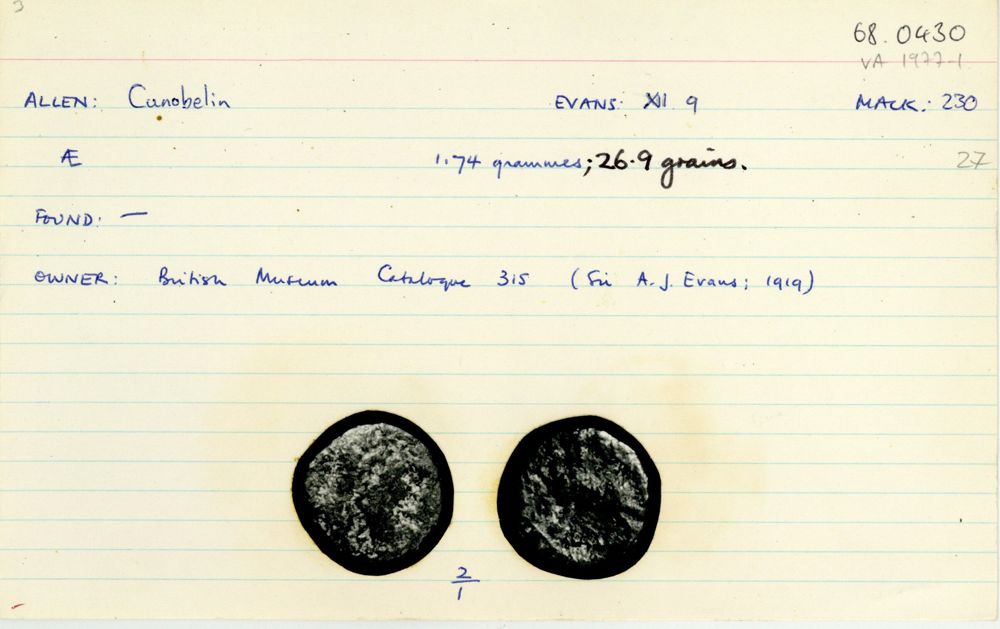 3
68.0430
VA 1977-1
ALLEN: Cunobelin EVANS: XII 9 MACK: 230
Æ 1.74 grammes; 26.9 grains. 27
FOUND: —
OWNER: British Museum Catalogue 315 (Sir A.J. Evans; 1919)
2
1